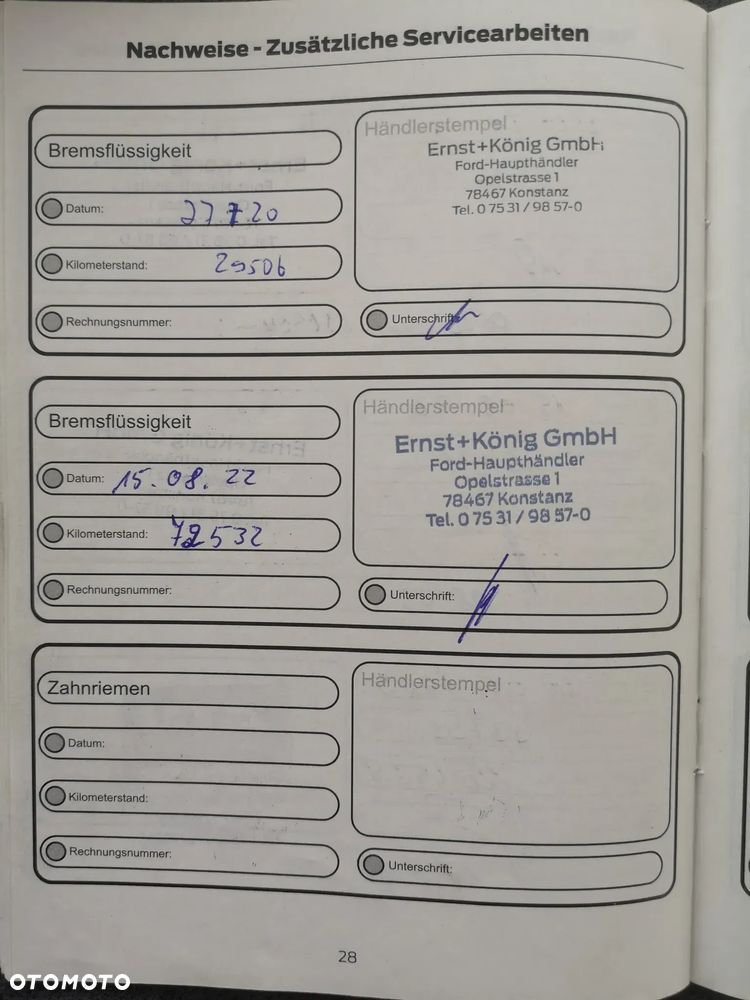 Nachweise - Zusätzliche Servicearbeiten
Bremsflüssigkeit
Datum: 27 7 20
Kilometerstand: 29506
Rechnungsnummer:
Händlerstempel
Ernst+König GmbH
Ford-Haupthändler
Opelstrasse 1
78467 Konstanz
Tel. 0 75 31 / 98 57-0
Unterschrift:
Bremsflüssigkeit
Datum: 15. 08. 22
Kilometerstand: 72532
Rechnungsnummer:
Händlerstempel
Ernst+König GmbH
Ford-Haupthändler
Opelstrasse 1
78467 Konstanz
Tel. 0 75 31 / 98 57-0
Unterschrift:
Zahnriemen
Datum:
Kilometerstand:
Rechnungsnummer:
Händlerstempel
Unterschrift:
28
OTOMOTO